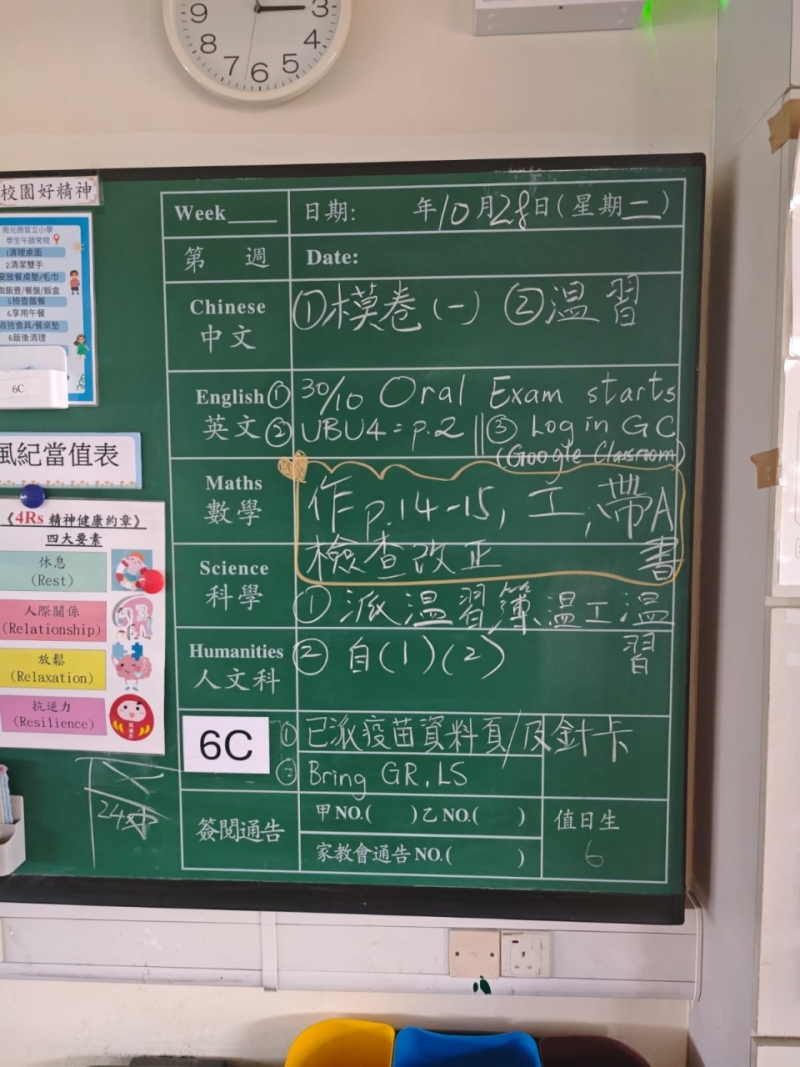 9
3
8
4
7
6
5
校園好精神
南元朗官立小學
學生午膳常規
1清理桌面
2.清潔雙手
5.檢查飯餐
6.享用午餐
8飯後清理
6C
風紀當值表
《4Rs 精神健康約章》
四大要素
休息
(Rest)
人際關係
(Relationship)
放鬆
(Relaxation)
抗逆力
(Resilience)
Week____ 日期: 年10月28日(星期二)
第 週 Date:
Chinese
中文
①模卷(一) ②溫習
English
英文
① 30/10 Oral Exam starts
② UBU4 = p.2 ‖ ③ Log in GC
(Google Classroom)
Maths
數學
作 p.14-15, 工, 帶A書
檢查改正
Science
科學
① 派溫習簿 溫工溫習
Humanities
人文科
② 自(1)(2)
6C
① 已派疫苗資料頁/及針卡
② Bring GR, LS
簽閱通告
甲NO.( )乙NO.( )
家教會通告NO.( )
值日生
6